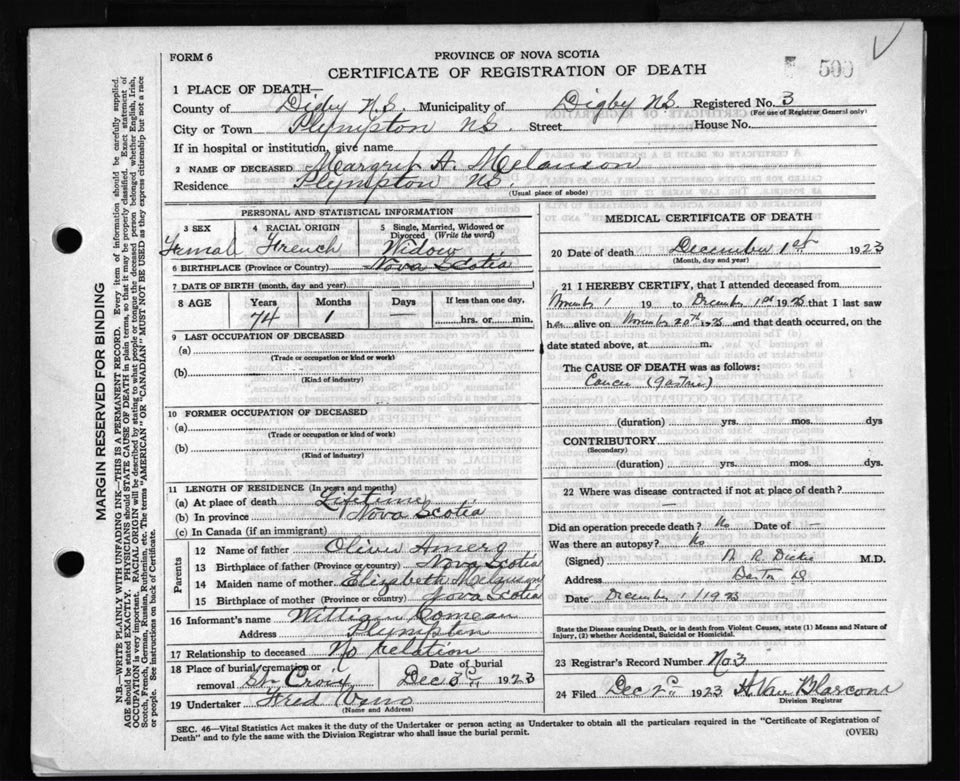 FORM 6
PROVINCE OF NOVA SCOTIA
CERTIFICATE OF REGISTRATION OF DEATH
500
1 PLACE OF DEATH—
County of Digby N.S. Municipality of Digby NS Registered No. 3
(For use of Registrar General only)
City or Town Plympton NS. Street House No.
If in hospital or institution, give name
2 NAME OF DECEASED Margrit A. Melanson
Residence Plympton NS.
(Usual place of abode)
PERSONAL AND STATISTICAL INFORMATION
3 SEX 4 RACIAL ORIGIN 5 Single, Married, Widowed or Divorced (Write the word)
Femal French Widow
6 BIRTHPLACE (Province or Country) Nova Scotia
7 DATE OF BIRTH (month, day and year)
8 AGE Years Months Days If less than one day,
74 1 — hrs. or min.
9 LAST OCCUPATION OF DECEASED
(a)
(Trade or occupation or kind of work)
(b)
(Kind of industry)
10 FORMER OCCUPATION OF DECEASED
(a)
(Trade or occupation or kind of work)
(b)
(Kind of industry)
11 LENGTH OF RESIDENCE (In years and months)
(a) At place of death Lifetime
(b) In province Nova Scotia
(c) In Canada (if an immigrant)
Parents
12 Name of father Oliver Amerg
13 Birthplace of father (Province or country) Nova Scotia
14 Maiden name of mother Elizabeth Melanson
15 Birthplace of mother (Province or country) Nova Scotia
16 Informant's name William Comeau
Address Plympton
17 Relationship to deceased No relation
18 Place of burial, cremation or removal St Croix Date of burial Dec 3 1923
19 Undertaker Fred
(Name and Address)
MEDICAL CERTIFICATE OF DEATH
20 Date of death December 1st 1923
(Month, day and year)
21 I HEREBY CERTIFY, that I attended deceased from
November 1 19 to December 1st 1923 that I last saw
her alive on November 20th 1923 and that death occurred, on the
date stated above, at m.
The CAUSE OF DEATH was as follows:
Cancer (Gastric)
(duration) yrs. mos. dys.
CONTRIBUTORY
(Secondary)
(duration) yrs. mos. dys
22 Where was disease contracted if not at place of death? —
Did an operation precede death? No Date of —
Was there an autopsy? No
(Signed) M.D.
Address
Date December 1/1923
State the Disease causing Death, or in death from Violent Causes, state (1) Means and Nature of Injury, (2) whether Accidental, Suicidal or Homicidal.
23 Registrar's Record Number No. 3
24 Filed Dec 2 1923 H. Van Blarcom
Division Registrar
SEC. 46—Vital Statistics Act makes it the duty of the Undertaker or person acting as Undertaker to obtain all the particulars required in the "Certificate of Registration of
Death" and to fyle the same with the Division Registrar who shall issue the burial permit.
(OVER)
MARGIN RESERVED FOR BINDING
N.B.—WRITE PLAINLY WITH UNFADING INK—THIS IS A PERMANENT RECORD. Every item of information should be carefully supplied.
AGE should be stated EXACTLY. PHYSICIANS should STATE CAUSE OF DEATH in plain terms, so that it may be properly classified. Exact statement of
OCCUPATION is very important. RACIAL ORIGIN will be described by stating to what people or tongue the deceased person belonged whether English, Irish,
Scotch, French, German, Russian, Ruthenian, etc. The terms "AMERICAN" OR "CANADIAN" MUST NOT BE USED as they express citizenship but not a race
or people. See instructions on back of Certificate.